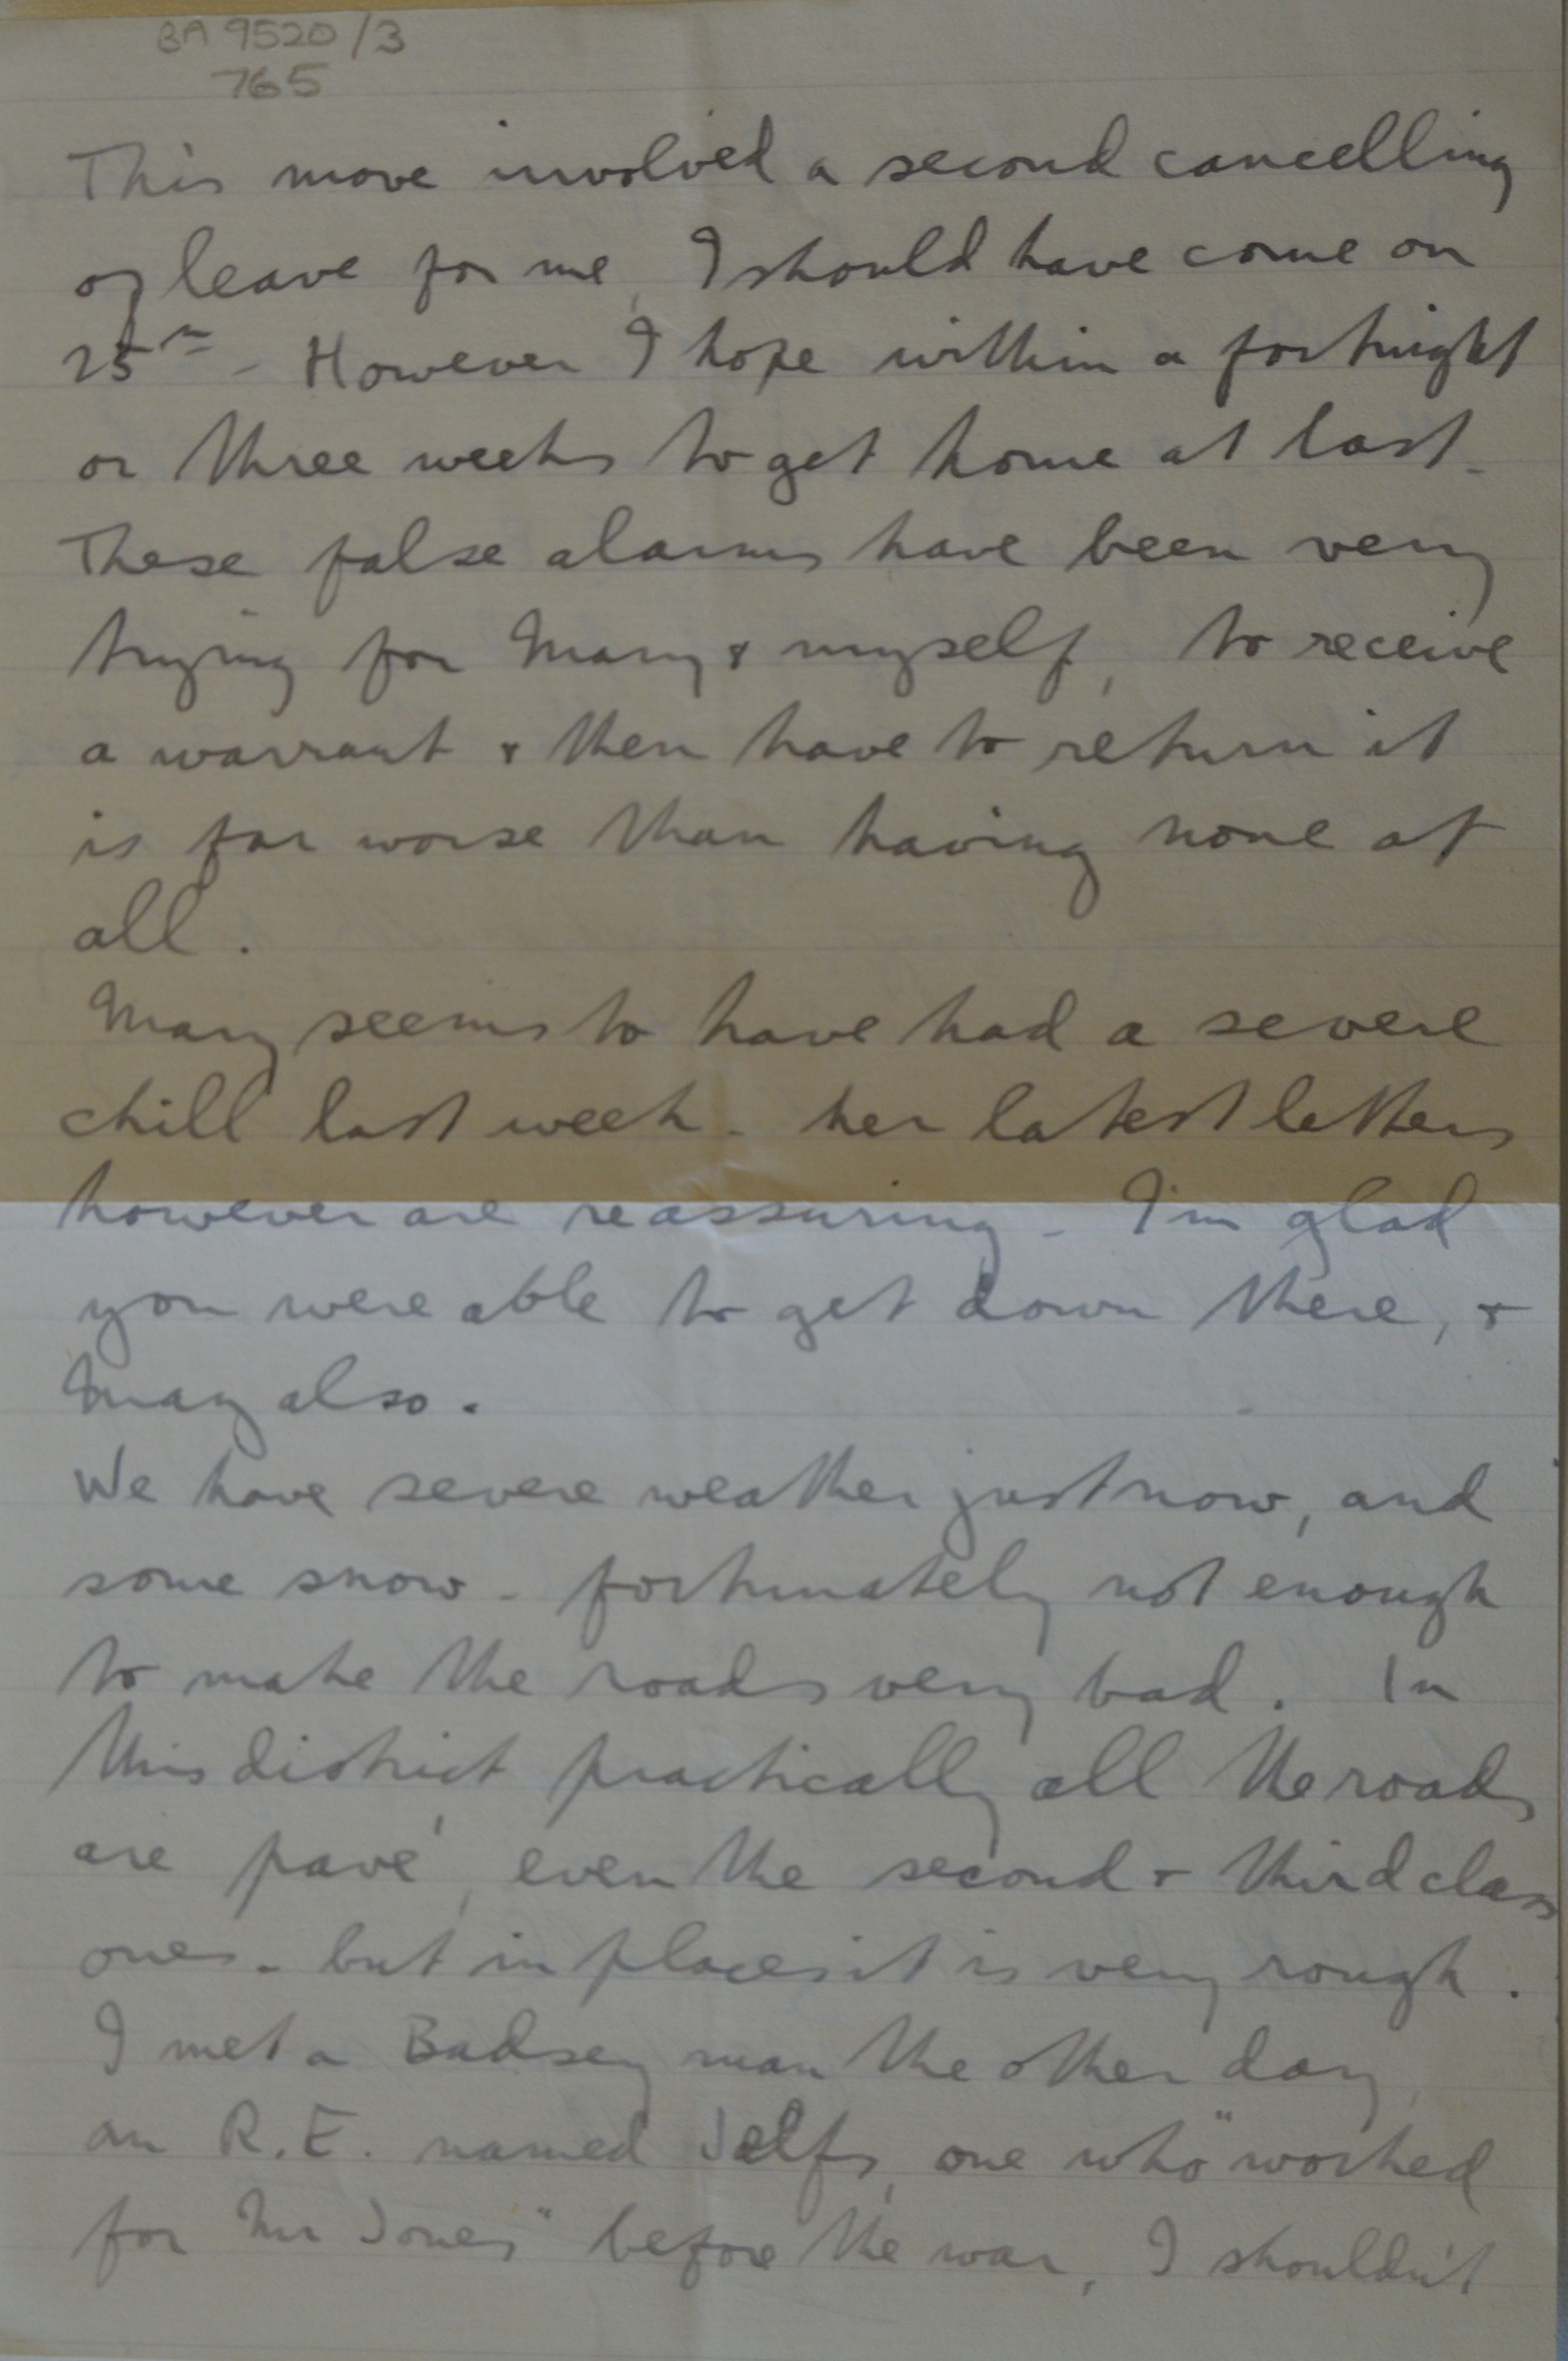 BA 9520/3
765
This move involved a second cancelling
of leave for me, I should have come on
25th - However I hope within a fortnight
or three weeks to get home at last.
These false alarms have been very
trying for Mary & myself, to receive
a warrant & then have to return it
is far worse than having none at
all.
Mary seems to have had a severe
chill last week - her latest letters
however are reassuring - I'm glad
you were able to get down there, &
May also.
We have severe weather just now, and
some snow - fortunately not enough
to make the roads very bad. In
this district practically all the roads
are pavé, even the second & third class
ones - but in places it is very rough.
I met a Badsey man the other day,
an R.E. named Jelfs, one who "worked
for Mr Jones" before the war, I shouldn't